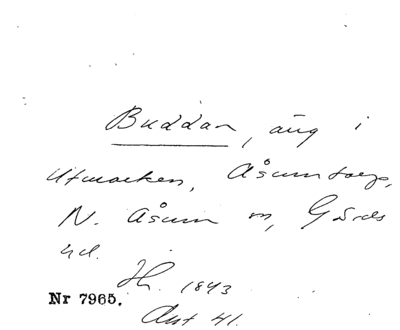 Buddan, äng i
Utmarken, Åsumtorp,
N. Åsum sn, Gärds
hd.
Jh. 1843
Nr 7965.
Akt 41.